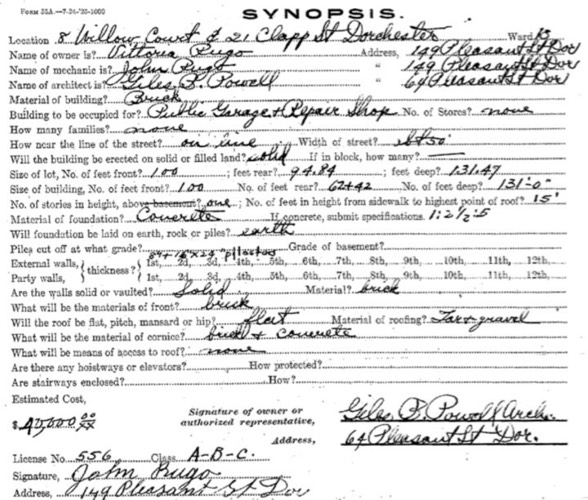 Form 35A.—7-24-'25-1000
SYNOPSIS.
Location 8 Willow Court & 21 Clapp St Dorchester Ward 13
Name of owner is? Vittoria Rugo Address, 149 Pleasant St Dor
Name of mechanic is? John Rugo " 149 Pleasant St Dor
Name of architect is? Giles F. Powell " 64 Pleasant St Dor
Material of building? Brick
Building to be occupied for? Public Garage + Repair Shop No. of Stores? none
How many families? none
How near the line of the street? on line Width of street?
Will the building be erected on solid or filled land? solid If in block, how many? —
Size of lot, No. of feet front? 100 ; feet rear? 94.84 ; feet deep? 131.47
Size of building, No. of feet front? 100 No. of feet rear? 62+42 No. of feet deep? 131'-0"
No. of stories in height, above basement? one ; No. of feet in height from sidewalk to highest point of roof? 15'
Material of foundation? Concrete If concrete, submit specifications. 1:2½:5
Will foundation be laid on earth, rock or piles? earth
Piles cut off at what grade? Grade of basement?
External walls, thickness? 1st, 2d, 3d, 4th, 5th, 6th, 7th, 8th, 9th, 10th, 11th, 12th,
Party walls, 1st, 2d, 3d, 4th, 5th, 6th, 7th, 8th, 9th, 10th, 11th, 12th,
Are the walls solid or vaulted? Solid Material? brick
What will be the materials of front? brick
Will the roof be flat, pitch, mansard or hip? flat Material of roofing? Tar & gravel
What will be the material of cornice? brick & concrete
What will be means of access to roof? none
Are there any hoistways or elevators? How protected?
Are stairways enclosed? How?
Estimated Cost,
$ 40,000 00/xx Signature of owner or authorized representative, Giles F. Powell Arch.
Address, 64 Pleasant St Dor.
License No. 556 Class A-B-C.
Signature, John Rugo
Address, 149 Pleasant St Dor